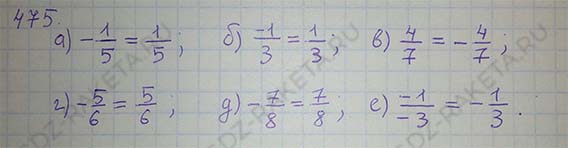 475.
а) -1/5 = 1/5; б) -1/3 = 1/3; в) 4/7 = -4/7;
г) -5/6 = 5/6; д) -7/8 = 7/8; е) -1/-3 = -1/3.
GDZ-RAKETA.RU